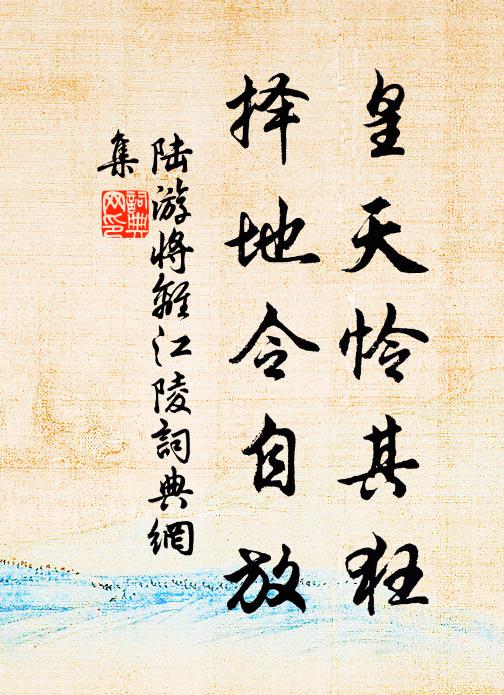 皇天怜其狂
择地令自放
陆游将離江陵詞典網
集
詞典
网印